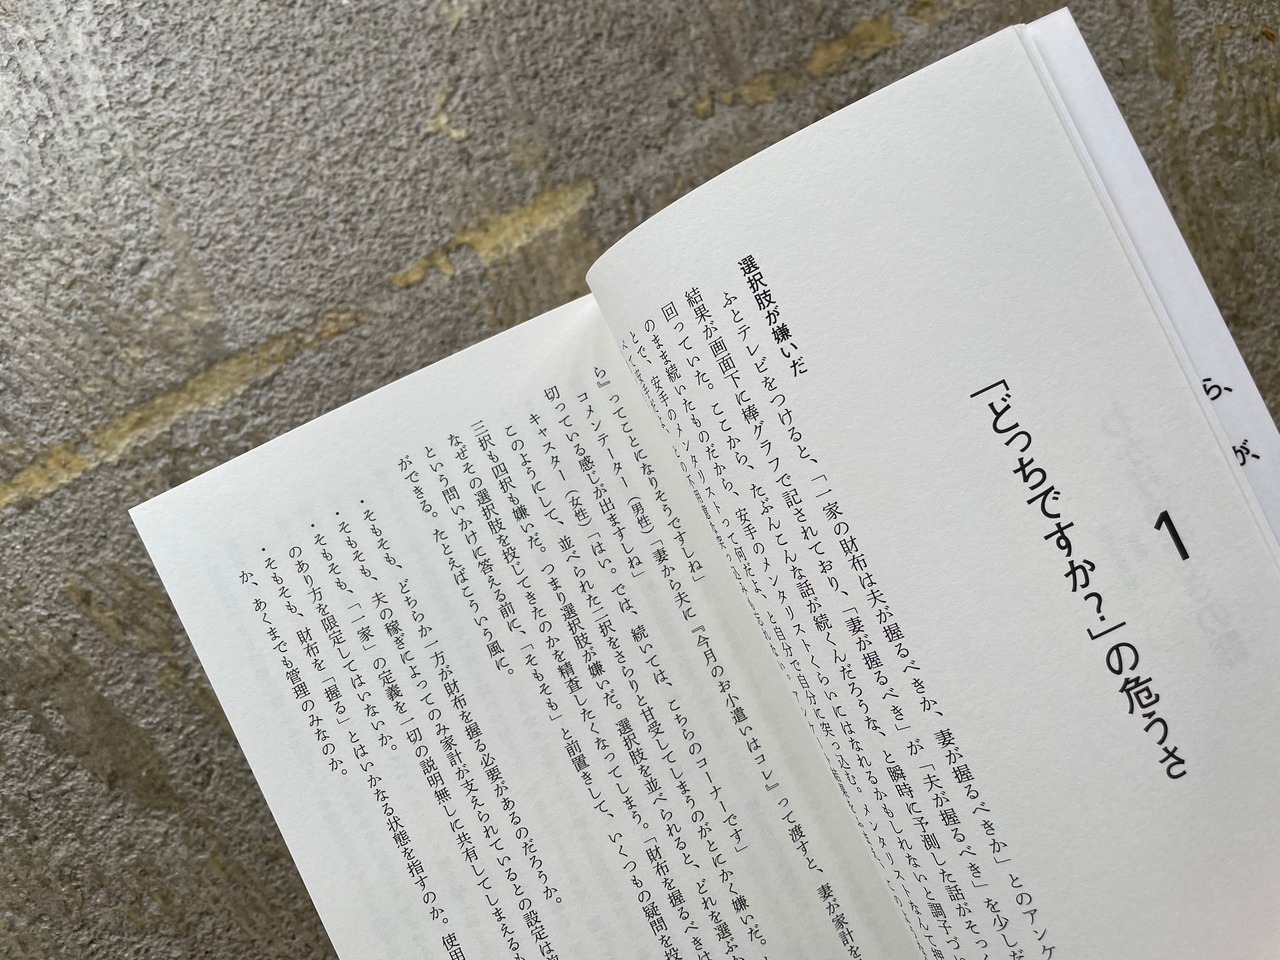 1
「どっちですか？」の危うさ
選択肢が嫌いだ
ふとテレビをつけると、「一家の財布は夫が握るべきか、妻が握るべきか」とのアンケ
結果が画面下に棒グラフで記されており、「妻が握るべき」が「夫が握るべき」を少しだ
回っていた。ここから、たぶんこんな話が続くんだろうな、と瞬時に予測した話がそっく
のまま続いたものだから、安手のメンタリストくらいにはなれるかもしれないと調子づい
とで、安手のメンタリストって何だよ、と自分で自分に突っ込む。メンタリストなんて押
ら』ってことになりそうですしね」
コメンテーター（男性）「妻から夫に『今月のお小遣いはコレ』って渡すと、妻が家計を
切っている感じが出ますしね」
キャスター（女性）「はい。では、続いては、こちらのコーナーです」
このようにして、並べられた二択をさらりと甘受してしまうのがとにかく嫌いだ。
三択も四択も嫌いだ。つまり選択肢が嫌いだ。選択肢を並べられると、どれを選ぶか
なぜその選択肢を投じてきたのかを精査したくなってしまう。「財布を握るべきは
という問いかけに答える前に、「そもそも」と前置きして、いくつもの疑問を投
ができる。たとえばこういう風に。
・そもそも、どちらか一方が財布を握る必要があるのだろうか。
・そもそも、夫の稼ぎによってのみ家計が支えられているとの設定は
・そもそも、「一家」の定義を一切の説明無しに共有してしまえるも
のあり方を限定してはいないか。
・そもそも、財布を「握る」とはいかなる状態を指すのか。使用
か、あくまでも管理のみなのか。
ら、
が、